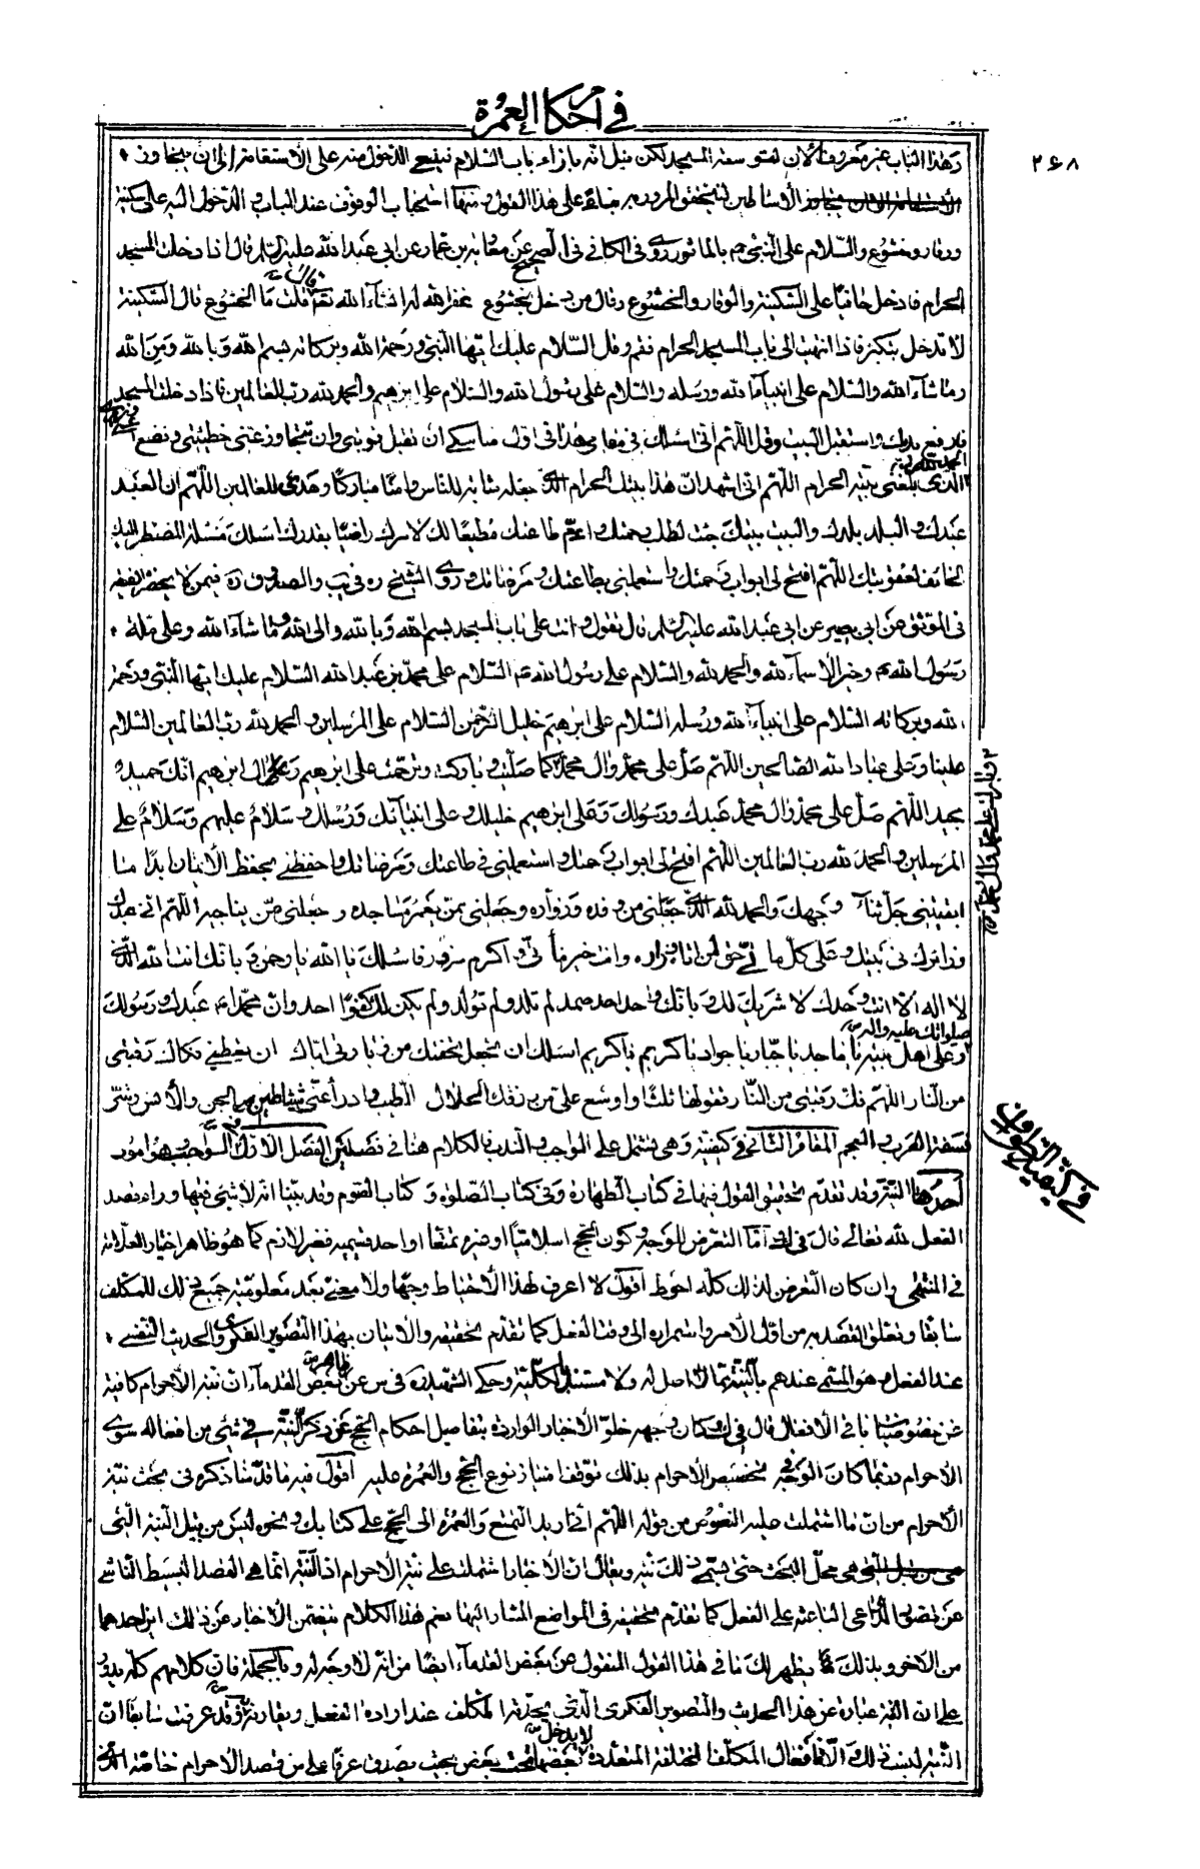 في أحكام العمرة
٢٦٨
وهذا الباب غير معروف الآن لتوسعة المسجد لكن قيل انه بازاء باب السلام فينبغي الدخول منه على الاستقامة الى ان يتجاوز
الأساطين ليتحقق المرور به بناء على هذا القول ومنها استحباب الوقوف عند الباب والدخول اليه على سكينة
ووقار وخشوع والسلام على النبي ص بالماثور روى في الكافي في الصحيح عن معاوية بن عمار عن ابي عبد الله عليه السلام قال اذا دخلت المسجد
الحرام فادخل حافيا على السكينة والوقار والخشوع وقال من دخل بخشوع غفر الله له انشاء الله تعالى قلت ما الخشوع قال السكينة
لا تدخل بتكبر فاذا انتهيت الى باب المسجد الحرام فقم وقل السلام عليك ايها النبي ورحمة الله وبركاته بسم الله وبالله ومن الله
وما شاء الله والسلام على انبياء الله ورسله والسلام على رسول الله والسلام على ابرهيم والحمد لله رب العالمين فاذا دخلت المسجد
فارفع يديك واستقبل البيت وقل اللهم اني اسئلك في مقامي هذا في اول مناسكي ان تقبل توبتي وان تتجاوز عن خطيئتي وتضع عني وزري
الحمد لله الذي بلغني بيته الحرام اللهم اني اشهد ان هذا بيتك الحرام الذي جعلته مثابة للناس وامنا مباركا وهدى للعالمين اللهم ان العبد
عبدك والبلد بلدك والبيت بيتك جئت اطلب رحمتك واؤم طاعتك مطيعا لامرك راضيا بقدرك اسئلك مسئلة المضطر اليك
الخائف لعقوبتك اللهم افتح لي ابواب رحمتك واستعملني بطاعتك ومرضاتك وروى الشيخ ره في يب والصدوق ره فيمن لا يحضره الفقيه
في الموثق عن ابي بصير عن ابي عبد الله عليه السلام قال تقول وانت على باب المسجد بسم الله وبالله والى الله وما شاء الله وعلى ملة
رسول الله ص وخير الاسماء لله والحمد لله والسلام على رسول الله ص السلام على محمد بن عبد الله السلام عليك ايها النبي ورحمة
الله وبركاته السلام على انبياء الله ورسله السلام على ابرهيم خليل الرحمن السلام على المرسلين والحمد لله رب العالمين السلام
علينا وعلى عباد الله الصالحين اللهم صل على محمد وآل محمد كما صليت وباركت وترحمت على ابرهيم وعلى آل ابرهيم انك حميد
مجيد اللهم صل على محمد وآل محمد عبدك ورسولك وعلى ابرهيم خليلك وعلى انبيائك ورسلك وسلام عليهم وسلام على
المرسلين والحمد لله رب العالمين اللهم افتح لي ابواب رحمتك واستعملني في طاعتك ومرضاتك واحفظني بحفظ الأيمان ابدا ما
ابقيتني جل ثناء وجهك والحمد لله الذي جعلني من وفده وزواره وجعلني ممن يعمر مساجده وجعلني ممن يناجيه اللهم اني عبدك
وزائرك في بيتك وعلى كل مأتي حق لمن اتاه وزاره وانت خير مأتي واكرم مزور فاسئلك يا الله يا رحمن وبانك انت الله الذي
لا اله الا انت وحدك لا شريك لك وبانك واحد احد صمد لم تلد ولم تولد ولم يكن لك كفوا احد وان محمدا ص عبدك ورسولك
صلواتك عليه وآله وعلى اهل بيته يا ماجد يا جبار يا جواد يا كريم يا كريم اسئلك ان تجعل تحفتك من زيارتي اياك ان تعطيني فكاك رقبتي
من النار اللهم فك رقبتي من النار تقولها ثلثا واوسع علي من رزقك الحلال الطيب وادرأ عني شياطين الجن والأنس وشر
فسقة العرب والعجم المقام الثاني في كيفيته وهي يشتمل على الواجب والندب فالكلام هنا في فصلين الفصل الاول في الواجب وهو امور
احدها النية وقد تقدم تحقيق القول فيها في كتاب الطهارة وفي كتاب الصلوة وكتاب الصوم وقد بينا انه لا شيئ فيها وراء قصد
الفعل لله تعالى قال في لك اما التعرض للوجه وكون الحج اسلاميا او غيره تمتعا او احد قسيميه فغير لازم كما هو ظاهر اختيار العلامة
في المنتهى وان كان التعرض لذلك كله احوط اقول لا اعرف لهذا الاحتياط وجها ولا معنى بعد معلومية جميع ذلك للمكلف
سابقا وتعلق القصد به من اول الأمر واستمراره الى وقت الفعل كما تقدم تحقيقه والاتيان بهذا التصوير الفكري والحديث النفسي
عند الفعل وهو المسمى عندهم بالنية مما لا اصل له ولا مستند بالكلية وحكى الشهيد ره في س عن ظاهر بعض القدماء ان نية الأحرام كافية
عن خصوصيات نيات الافعال قال في لك وكان وجهه خلو الاخبار الواردة بتفاصيل احكام الحج عن ذكر النية في شئ من افعاله سوى
الأحرام وربما كان الوجه في تخصيص الاحرام بذلك توقف امتياز نوع الحج والعمرة عليه اقول فيه ما قدمنا ذكره في بحث نية
الأحرام من ان ما اشتملت عليه النصوص من قوله اللهم اني اريد التمتع بالعمرة الى الحج على كتابك ونحوه ليس من قبيل النية التي
هي محل البحث حتى يسمى ذلك نية ويقال ان الاخبار اشتملت على نية الاحرام اذ النية انما هي القصد البسيط الناشئ
عن تصور الداعي الباعثة على الفعل كما تقدم تحقيقه في المواضع المشار اليها نعم هذا الكلام يتضمن الأخبار عن ذلك اين احدهما
من الآخر وبذلك يظهر لك ما في هذا القول المنقول عن بعض القدماء ايضا من انه لا وجه له وبالجملة فان كلامهم كله يدور
على ان النية عبارة عن هذا الحديث والتصوير الفكري الذي يحدثه المكلف عند ارادة الفعل ويقارنه به وقد عرفت سابقا ان
النية ليست ذلك والا فافعال المكلف المختلفة المتعددة لا يدخل بعضها تحت بعض بحيث يصدق عرفا على من قصد الأحرام خاصة
وبارك على محمد وآل محمد
في كيفية الطواف